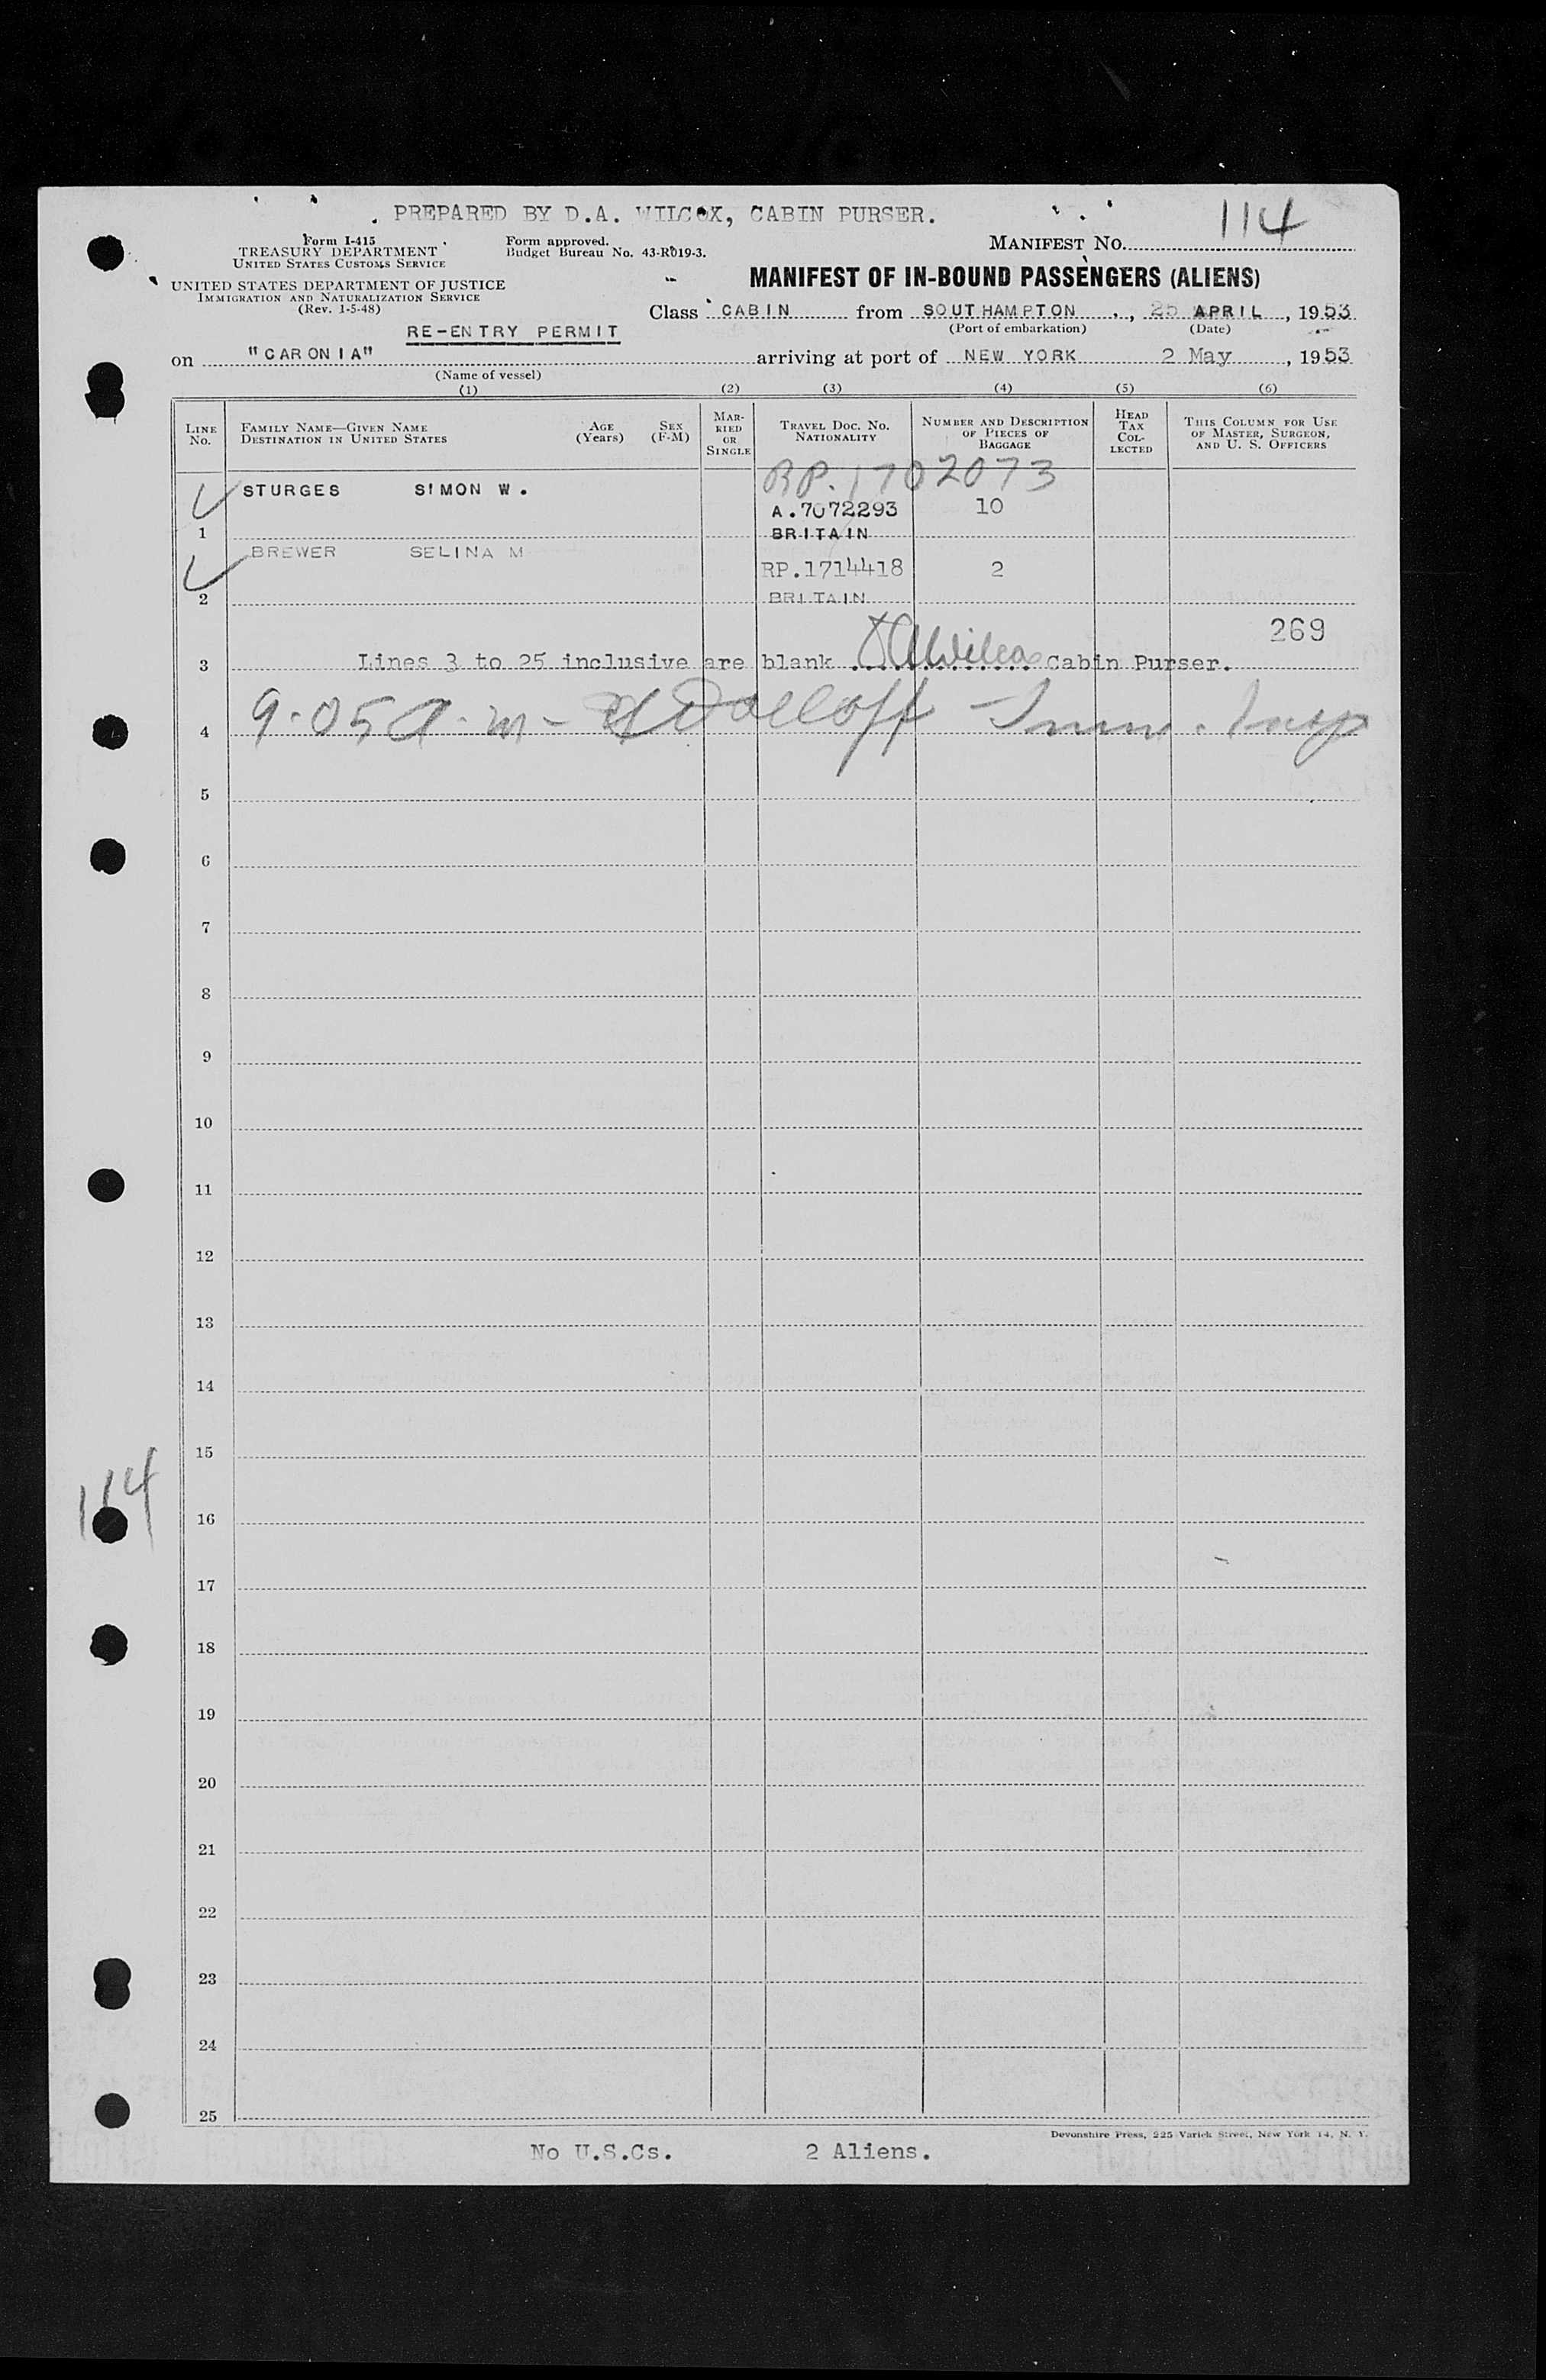 PREPARED BY D.A. WILCOX, CABIN PURSER.
114
Form I-415
TREASURY DEPARTMENT
UNITED STATES CUSTOMS SERVICE
Form approved.
Budget Bureau No. 43-R019-3.
MANIFEST NO.
UNITED STATES DEPARTMENT OF JUSTICE
IMMIGRATION AND NATURALIZATION SERVICE
(Rev. 1-5-48)
MANIFEST OF IN-BOUND PASSENGERS (ALIENS)
Class CABIN from SOUTHAMPTON, 25 APRIL, 1953
(Port of embarkation) (Date)
RE-ENTRY PERMIT
on "CARONIA" arriving at port of NEW YORK 2 May, 1953
(Name of vessel)
(1) (2) (3) (4) (5) (6)
LINE NO.
FAMILY NAME—GIVEN NAME
DESTINATION IN UNITED STATES
AGE (Years)
SEX (F-M)
MARRIED OR SINGLE
TRAVEL DOC. NO. NATIONALITY
NUMBER AND DESCRIPTION OF PIECES OF BAGGAGE
HEAD TAX COLLECTED
THIS COLUMN FOR USE OF MASTER, SURGEON, AND U. S. OFFICERS
RP. 1702073
STURGES SIMON W.
A.7072293 10
1 BRITAIN
BREWER SELINA M
RP.1714418 2
2 BRITAIN
269
3 Lines 3 to 25 inclusive are blank DAWilcox Cabin Purser.
4 9.05 A.m - Imm. Insp
5
6
7
8
9
10
11
12
13
14
15
114
16
17
18
19
20
21
22
23
24
25
Devonshire Press, 225 Varick Street, New York 14, N. Y.
No U.S.Cs. 2 Aliens.